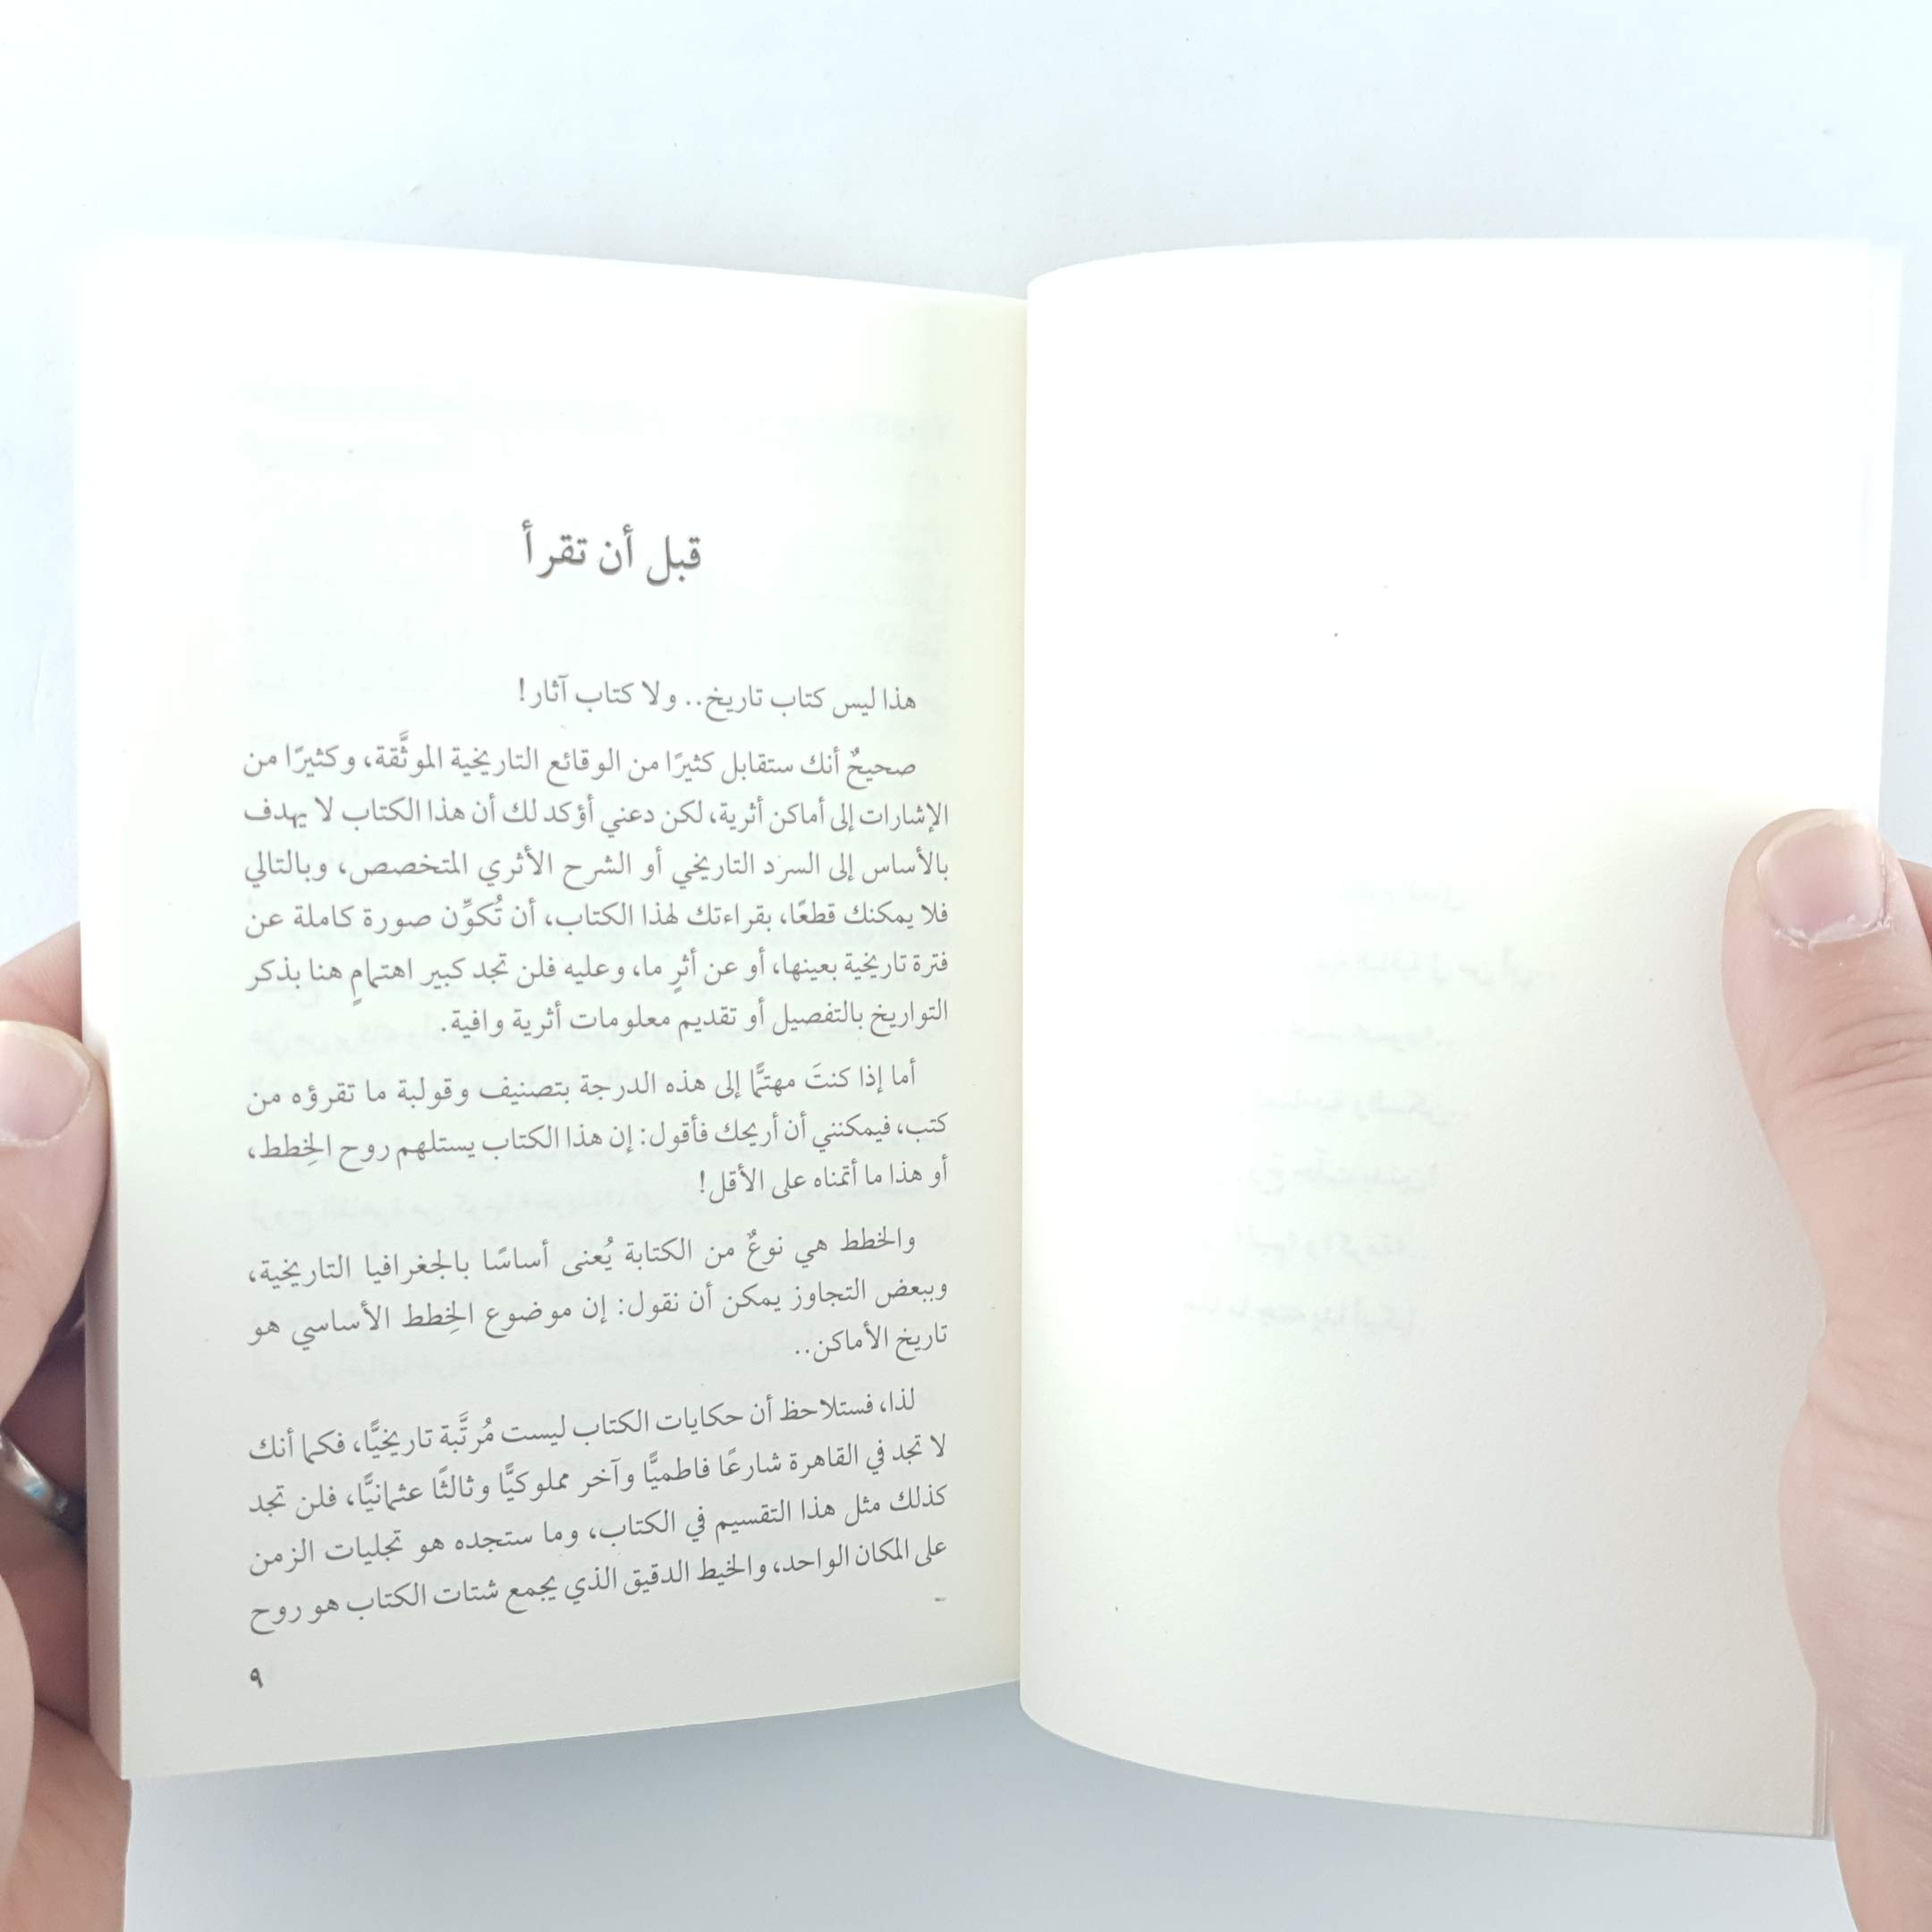 قبل أن تقرأ
هذا ليس كتاب تاريخ.. ولا كتاب آثار!
صحيحٌ أنك ستقابل كثيرًا من الوقائع التاريخية الموثَّقة، وكثيرًا من
الإشارات إلى أماكن أثرية، لكن دعني أؤكد لك أن هذا الكتاب لا يهدف
بالأساس إلى السرد التاريخي أو الشرح الأثري المتخصص، وبالتالي
فلا يمكنك قطعًا، بقراءتك لهذا الكتاب، أن تُكوِّن صورة كاملة عن
فترة تاريخية بعينها، أو عن أثرٍ ما، وعليه فلن تجد كبير اهتمامٍ هنا بذكر
التواريخ بالتفصيل أو تقديم معلومات أثرية وافية.
أما إذا كنتَ مهتمًّا إلى هذه الدرجة بتصنيف وقولبة ما تقرؤه من
كتب، فيمكنني أن أريحك فأقول: إن هذا الكتاب يستلهم روح الخِطط،
أو هذا ما أتمناه على الأقل!
والخطط هي نوعٌ من الكتابة يُعنى أساسًا بالجغرافيا التاريخية،
وببعض التجاوز يمكن أن نقول: إن موضوع الخِطط الأساسي هو
تاريخ الأماكن..
لذا، فستلاحظ أن حكايات الكتاب ليست مُرتَّبة تاريخيًّا، فكما أنك
لا تجد في القاهرة شارعًا فاطميًّا وآخر مملوكيًّا وثالثًا عثمانيًّا، فلن تجد
كذلك مثل هذا التقسيم في الكتاب، وما ستجده هو تجليات الزمن
على المكان الواحد، والخيط الدقيق الذي يجمع شتات الكتاب هو روح
٩